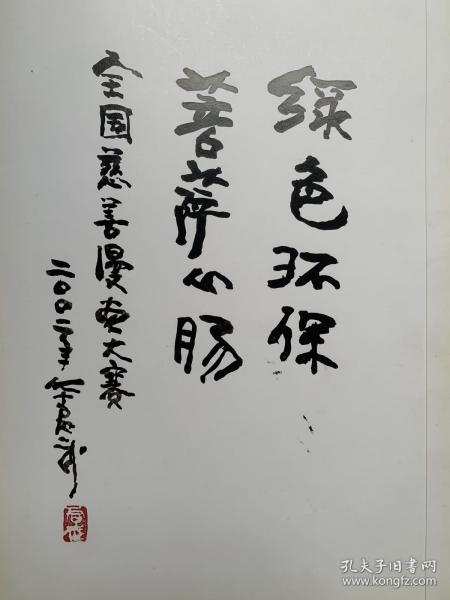 绿色环保
菩萨心肠
全国慈善漫画大赛
二〇〇二年
孔夫子旧书网
www.kongfz.com